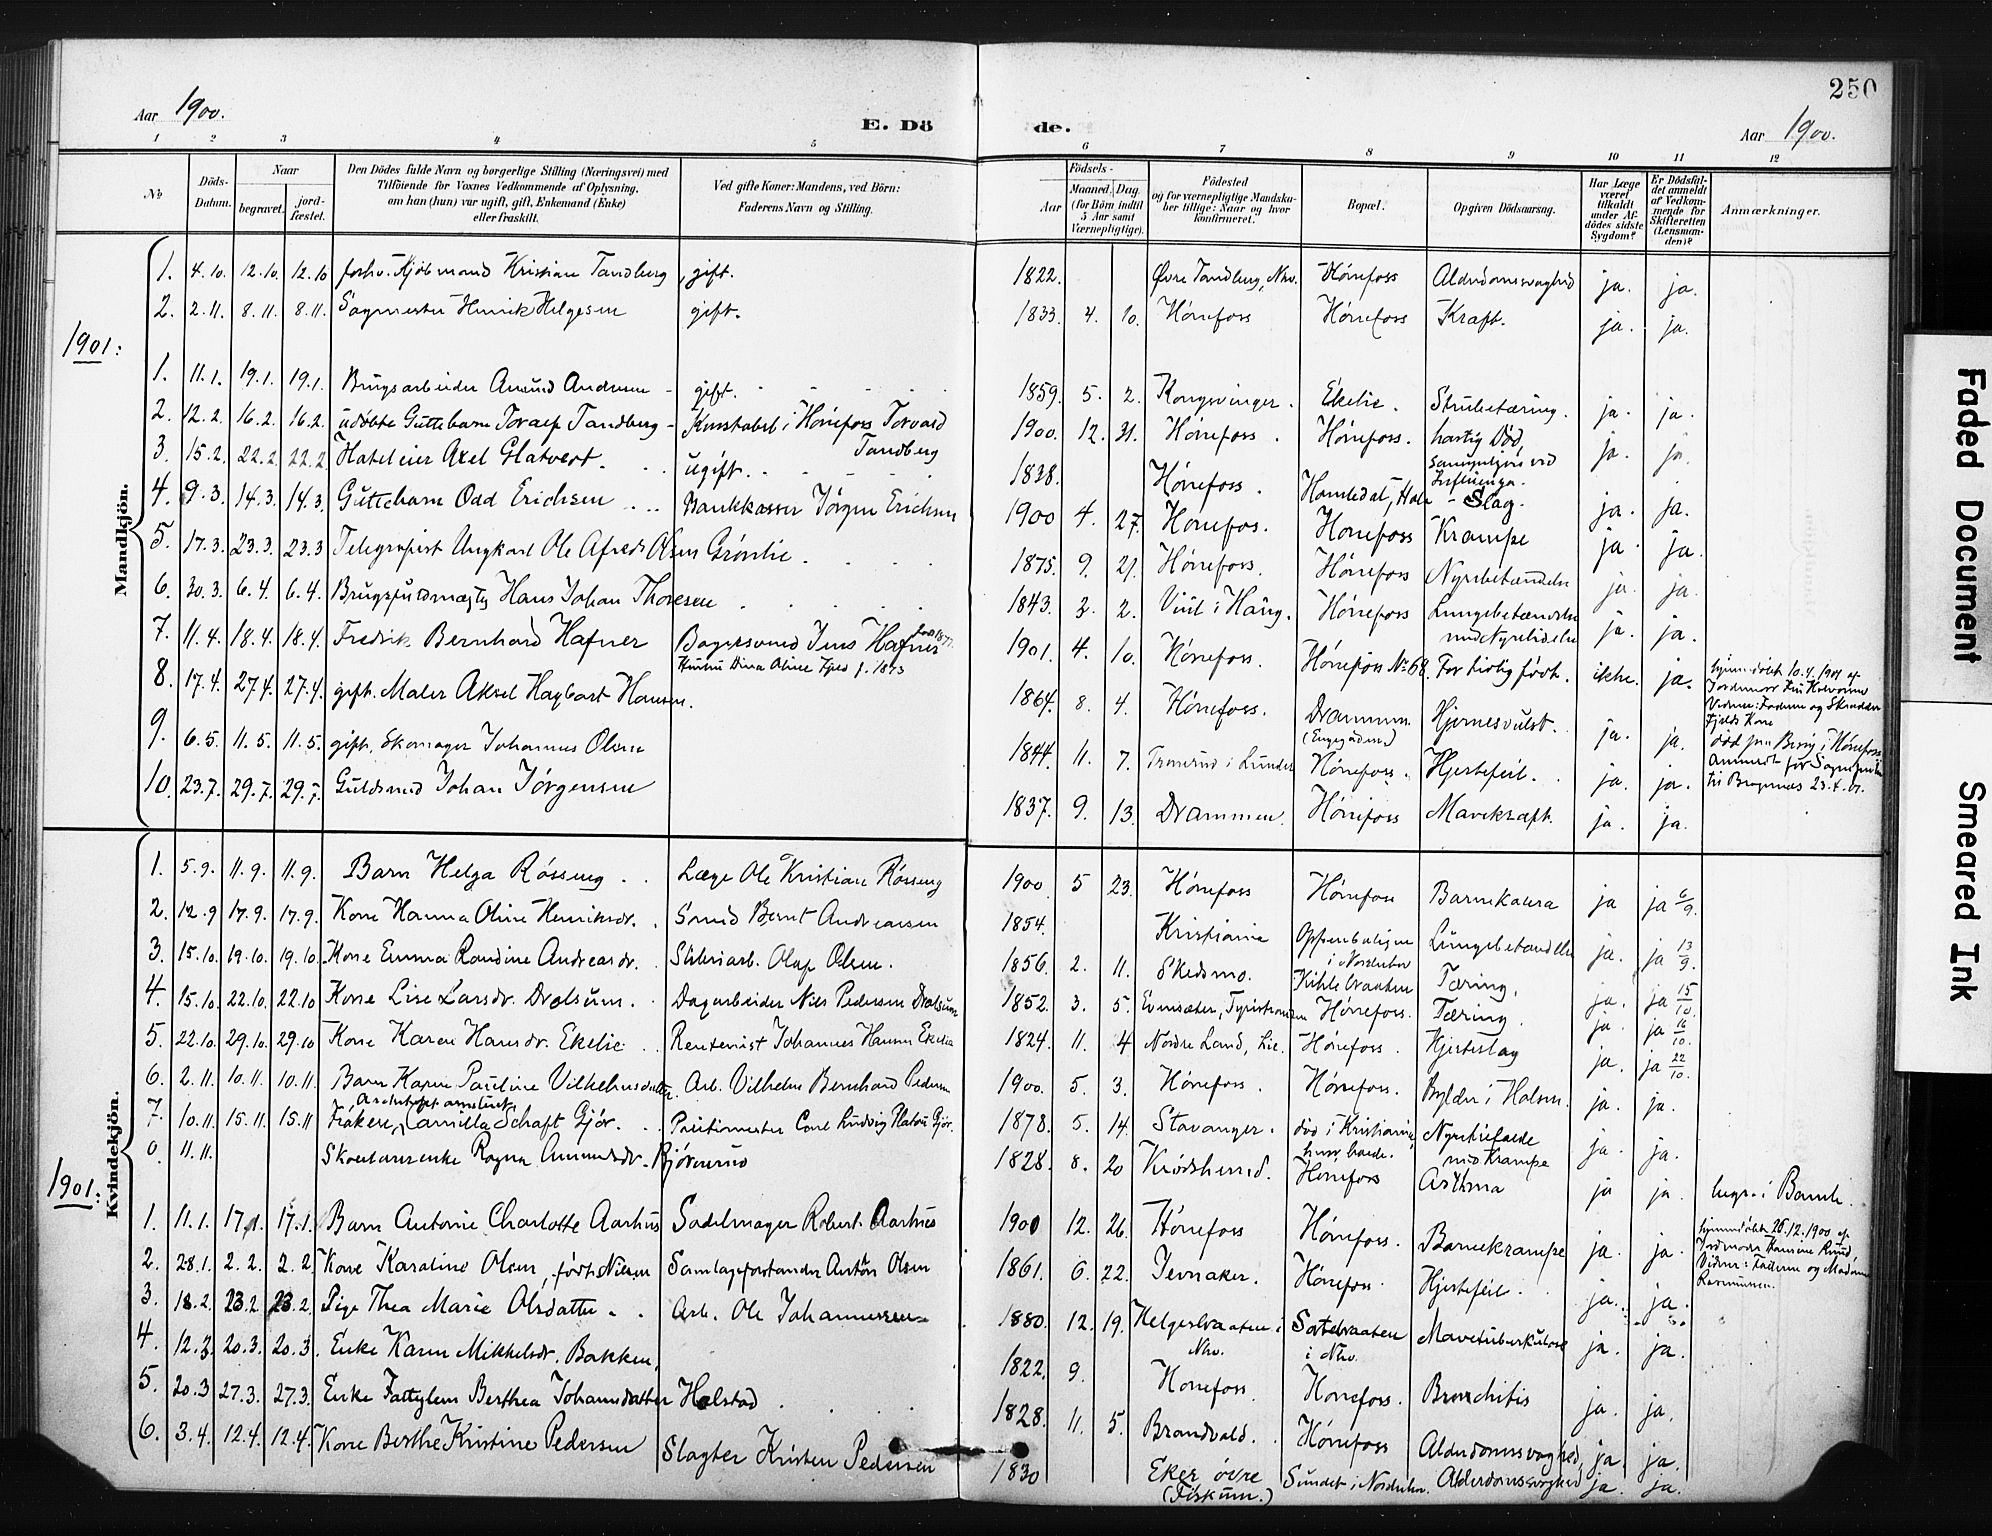 250
Aar 1900.
E. Dö
de.
Aar 1900.
1 2 3 4 5 6 7 8 9 10 11 12
No
Döds-Datum.
Naar
begravet.
jord-fæstet.
Den Dödes fulde Navn og borgerlige Stilling (Næringsvei) med
Tilföiende for Voxnes Vedkommende af Oplysning,
om han (hun) var ugift, gift, Enkemand (Enke)
eller fraskilt.
Ved gifte Koner: Mandens, ved Börn:
Faderens Navn og Stilling.
Födsels-
Aar
Maaned. Dag.
(for Börn indtil
5 Aar samt
Værnepligtige).
Födested
og for værnepligtige Mandska-
ber tillige: Naar og hvor
konfirmeret.
Bopæl.
Opgiven Dödsaarsag.
Har Læge
været
tilkaldt
under Af-
dödes sidste
Sygdom?
Er Dödsfal-
det anmeldt
af Vedkom-
mende for
Skifteretten
(Lensman-
den)?
Anmærkninger.
Mandkjön.
1. 4.10. 12.10. 12.10 forhv. Kjøbmand Kristian Tandberg, gift. 1822. Øvre Tandberg, Nhv. Hønefoss Alderdomssvaghed ja. ja.
2. 2.11. 8.11. 8.11. Sagmester Henrik Helgesen gift. 1833. 4. 10. Hønefoss Hønefoss Kræft. ja. ja.
1901:
1. 11.1. 19.1. 19.1. Brugsarbeider Amund Andersen gift. 1859. 5. 2. Kongsvinger. Ekelie. Strubetæring. ja. ja.
2. 12.2. 16.2. 16.2. udøbte Guttebarn Toralf Tandberg - Konstabel i Hønefoss Torvard Tandberg 1900. 12. 31. Hønefoss. Hønefoss. hastig Død, ja. ja.
3. 15.2. 22.2. 22.2 Hoteleier Axel Glatvedt. ugift. 1838. Hønefoss. Slag.
4. 9.3. 14.3. 14.3. Guttebarn Odd Erichsen Bankkasser Jørgen Erichsen 1900 4. 27. Hønefos. Hønefoss Krampe ja. ja.
5. 17.3. 23.3. 23.3 Telegrafist Ungkarl Ole Alfred Olsen Grønlie 1875. 9. 21. Hønefoss. Hønefoss Nyrebetændelse ja. ja.
6. 30.3. 6.4. 6.4. Brugsfuldmægtig Hans Johan Thoresen 1843. 2. 2. Hønefoss Lungebetændelse med Nyrelidelse ja. ja.
7. 11.4. 18.4. 18.4. Fredrik Bernhard Hafner Bagersvend Jens Hafner 1901. 4. 10. Hønefoss. Hønefoss No 68. For tidlig født. ikke. ja.
8. 17.4. 27.4. 27.4. gift. Maler Aksel Hagbart Hansen. 1864. 8. 4. Hønefoss. Drammen. Hjernesvulst. ja. ja.
9. 6.5. 11.5. 11.5. gift, Skomager Johannes Olsen 1844. 11. 7. Hønefoss. Hjertefeil. ja. ja.
10. 23.7. 29.7. 29.7. Guldsmed Johan Jørgensen 1837. 9. 13. Drammen. Hønefoss Mavekræft. ja. ja.
Kvindekjön.
1. 5.9. 11.9. 11.9. Barn Helga Røsseng Læge Ole Kristian Røsseng 1900 5 23. Hønefoss Hønefoss Barnekolera ja ja 6/9.
2. 12.9 17.9. 17.9. Kone Hanna Oline Henriksdr. Smed Bernt Andreassen 1854. Kristiania Lungebetændelse ja. ja 13/9.
3. 15.10. 19.10. 19.10. Kone Emma Randine Andreasdr. Sliberiarb. Olaf Olsen. 1856. 2. 11. Skedsmo. Tæring. ja. ja 15/10.
4. 15.10. 22.10. 22.10 Kone Lise Larsdr. Dralsum. Dagarbeider Nils Pedersen Dralsum 1852. 3. 5. Hønefoss. Tæring. ja ja 16/10.
5. 22.10. 29.10. 29.10 Kone Karen Hansdr. Ekelie Rentenist Johannes Hansen Ekelie 1824. 11. 4 Nordre Land, Lie. Hønefoss. Hjerteslag ja. ja 22/10.
6. 2.11. 10.11. 10.11. Barn Karen Pauline Vilhelmsdatter. Arb. Vilhelm Bernhard Pedersen 1900. 5. 3. Hønefoss. Hønefoss. Bylder i Halsen. ja. ja.
7. 10.11. 15.11. 15.11 Frøken, Camilla Schaft Gjør. Politimester Carl Ludvig Gjør. 1878. 5. 14. Stavanger. død i Kristiania, Nyrelidelse med Krampe ja. ja.
0. 11.11. Ragna Amundsdr. Bjørnerud 1828. 8. 20 Krødsherred. Hønefoss Asthma ja ja. begr. i Bamle.
1901:
1. 11.1. 17.1. 17.1. Barn Antonie Charlotte Aarhus Sadelmager Robert Aarhus 1900 12. 26. Hønefoss Hønefoss. Barnekrampe ja. ja.
2. 28.1. 2.2. 2.2. Kone Karoline Olsen, født Nilsen Samlagsforstander Anton Olsen 1861. 6. 22. Jevnaker. Hønefoss. Hjertefeil. ja. ja.
3. 18.2. 23.2 23.2. Pige Thea Marie Olsdatter Arb. Ole Johannessen 1880. 12. 19. Helgesbraaten i Nhv. i Nhv. Mavetuberkulose ja. ja.
4. 12.3. 20.3. 20.3. Enke Karen Mikkelsdr. Bakken, 1822. 9. Hønefoss. Hønefoss. Bronchitis ja. ja.
5. 20.3 27.3. 27.3. Enke Fattiglem Berthea Johannesdatter Halstad 1828. 11. 5. Brandvold. Hønefoss Alderdomssvaghed, ja. ja.
6. 3.4. 12.4. 12.4. Kone Berthe Kristine Pedersen Slagter Kristen Pedersen 1830 Eker øvre (Fiskum.) Sundet i Norderhov. Alderdomssvaghed ja. ja.
Faded Document
Smeared Ink